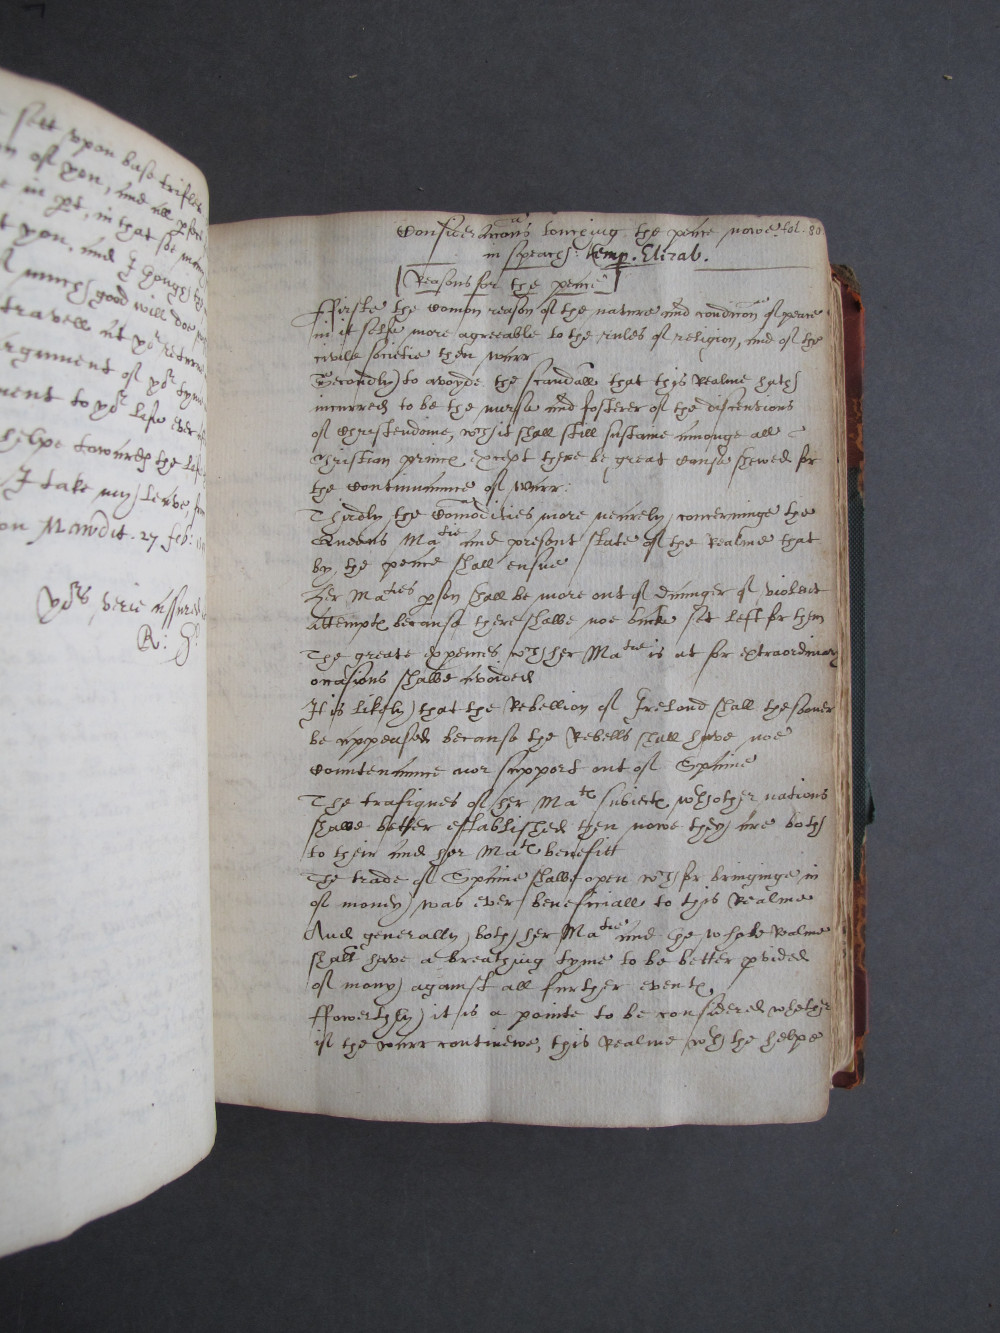 sett vpon base trifles
of you, and all
in pt, in that
you, and
much good will doe
travell at yor retorne
argument of yor
ment to yor life ever
helpe towards the
I take my leave
on Mawdit. 27 feb:
yors verie assured
R: G:
Consideracons touching the peace nowe fol. 80
in speach: temp. Elizab.
Reasons for the peace
ffirste the Comon reason of the nature and condicon of peace
in it selfe more agreeable to the rules of religion, and of the
civile societie then warr
Secondly to avoyde the scandall that this Realme hath
incurred to be the nurse and fosterer of the discentions
of Christendome, wch it shall still sustaine amonge all
Christian princes except there be great cause shewed for
the Continuance of warr:
Thirdly the Comodities more neerely concerninge the
Queens Matie and present state of the Realme that
by the peace shall ensue
Her Maties pson shall be more out of daunger of violent
attempts because there shalbe noe back set left for them
The greate expences wch her Matie is at for extraordinary
ocasions shalbe avoided
It is likely that the Rebellion of Ireland shall the sooner
be appeased because the Rebells shall have noe
Countenance nor support out of Spaine
The trafiques of her Mats subiects wth other nations
shalbe better established then nowe they are both
to their and her Mats benefitt
The trade of Spaine shalbe open wch for bringinge in
of money was ever beneficiall to this Realme
And generally both her Matie and the whole Realme
shall have a breathing tyme to be better pvided
of mony against all further events
ffowerthly it is a pointe to be considered whether
if the warr continewe, this Realme wth the helpe